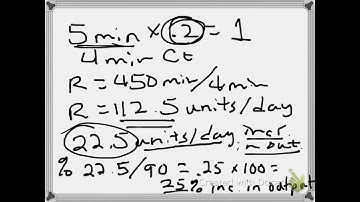 5 min × .2 = 1
4 min Ct
R = 450 min/4 min
R = 112.5 units/day
22.5 units/day incr. in out
% 22.5/90 = .25 × 100 =
25% inc. in output